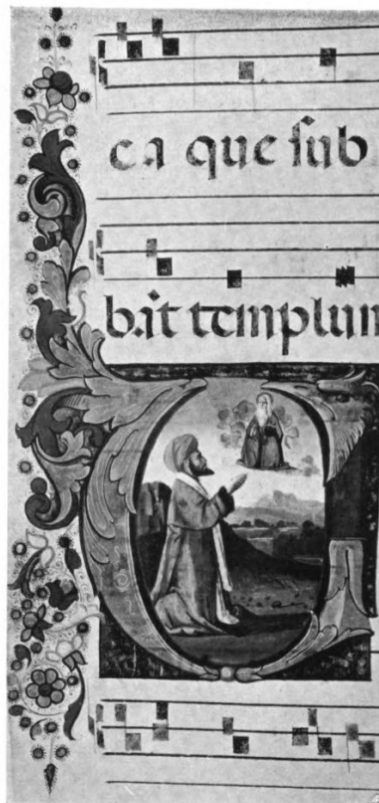 ca que sub
bat templum